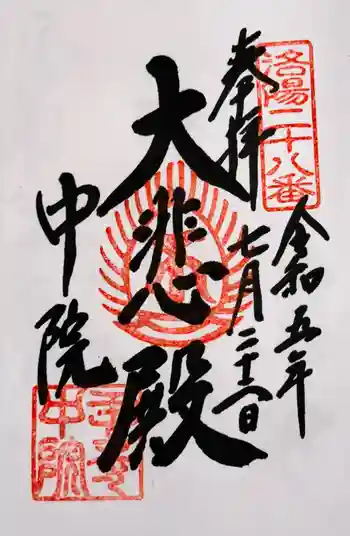 洛陽二十八番
奉拝
令和五年
七月二十六日
大悲殿
中院
壬生寺
中院